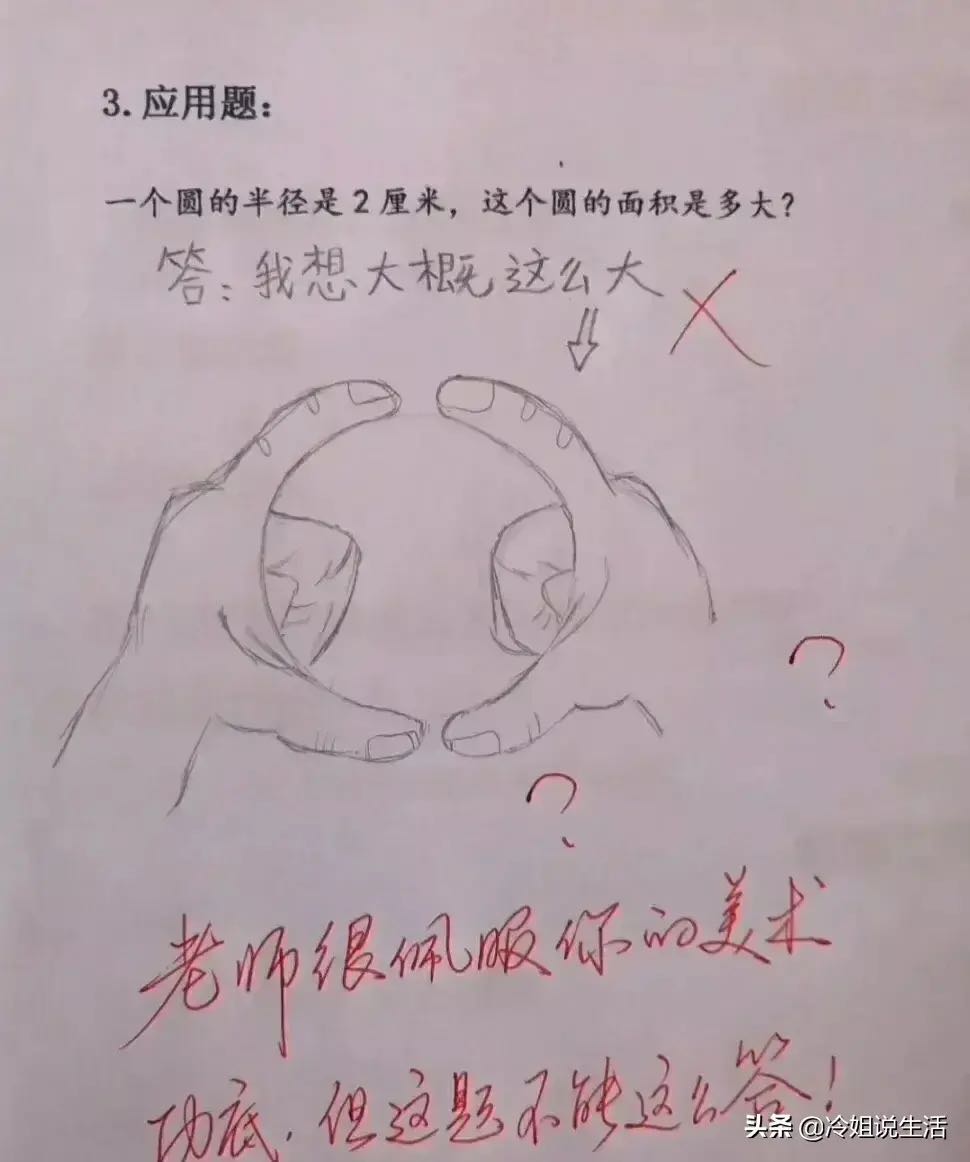 3.应用题：
一个圆的半径是2厘米，这个圆的面积是多大？
答：我想大概这么大
？
？
老师很佩服你的美术
功底，但这题不能这么答！
头条 @冷姐说生活